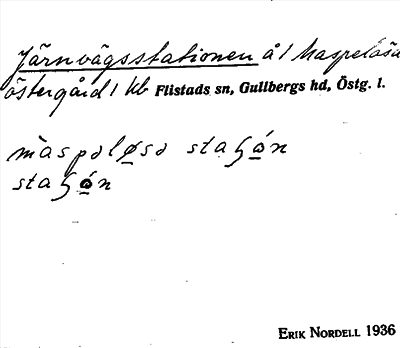 Järnvägsstationen å 1 Maspelösa
östergård 1 kb Flistads sn, Gullbergs hd, Östg. l.
màspəlø̱sə staʂó̱n
staʂó̱n
ERIK NORDELL 1936